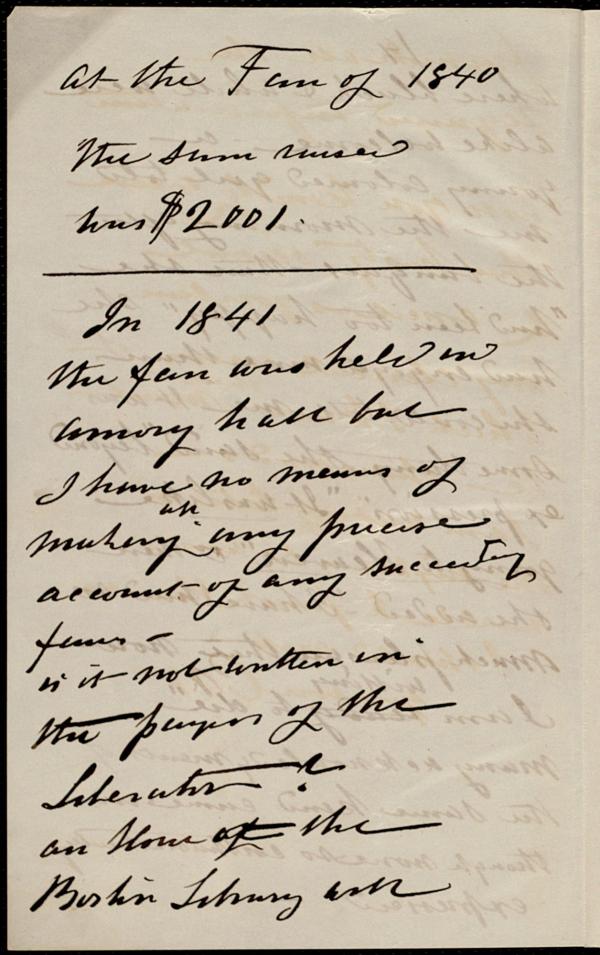 At the Fair of 1840
the sum raised
was $2001.
In 1841
the fair was held in
Amory hall but
I have no means of
making any precise
account of any succeeding
fairs –
is it not written in
the pages of the
Liberator?
an hour at the
Boston Library will